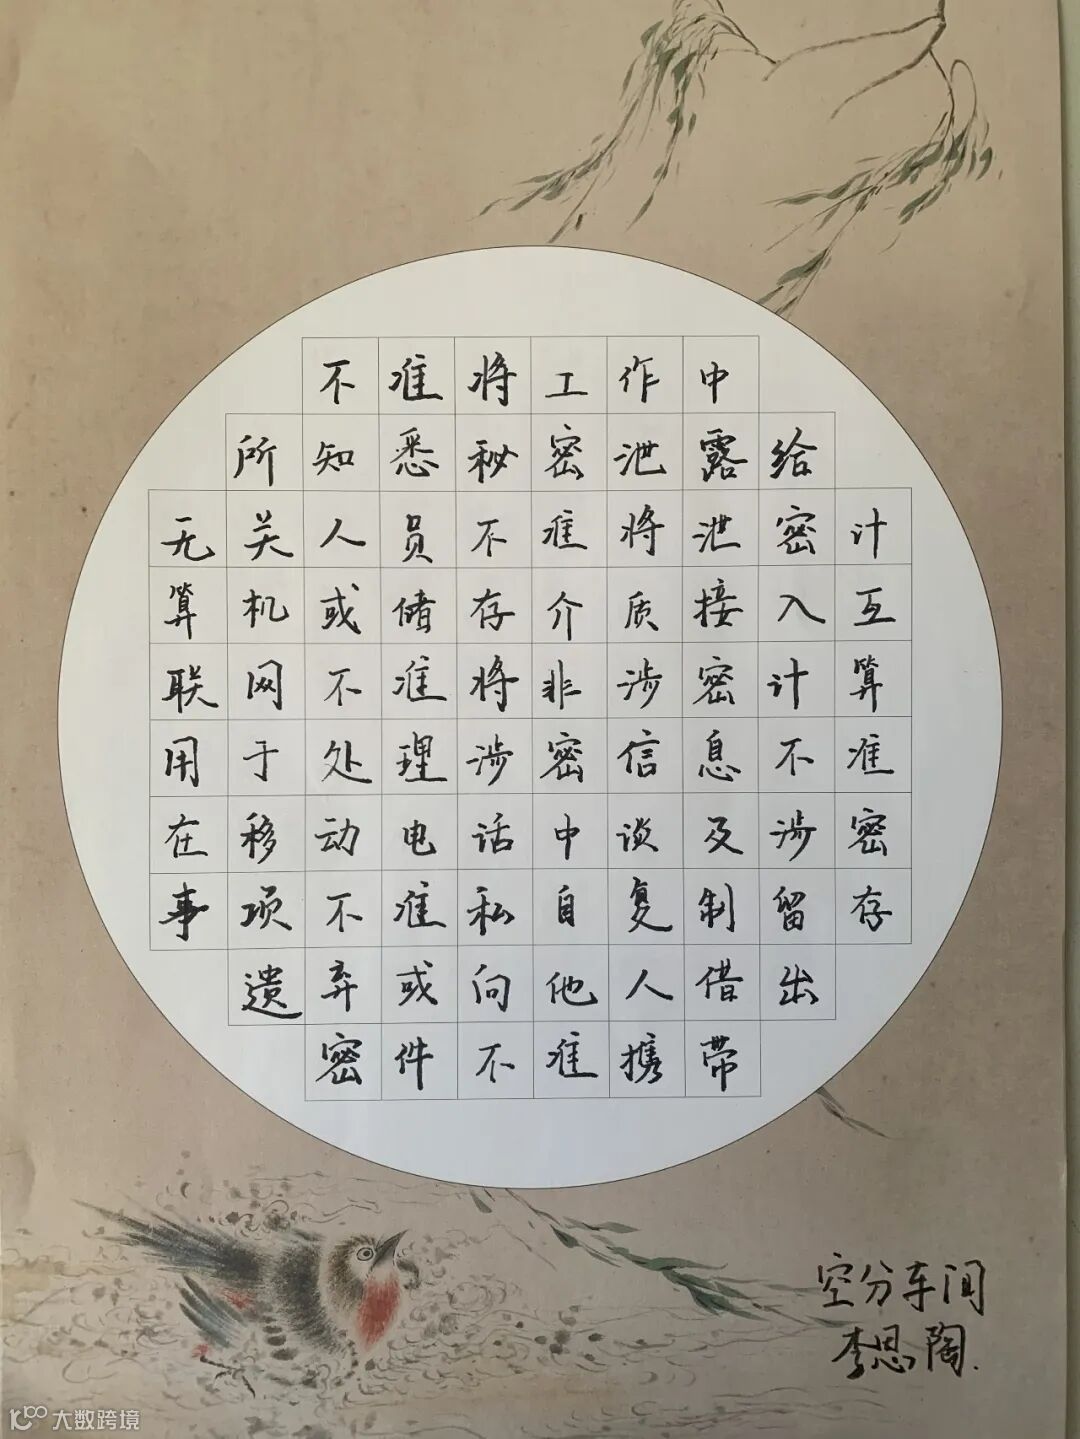 不准将工作中
所知悉秘密泄露给
无关人员不准将泄密计
算机或储存介质接入互
联网不准将非涉密计算
用于处理涉密信息不准
在移动电话中谈及涉密
事项不准私自复制留存
遗弃或向他人借出
密件不准携带
空分车间
李思陶.
大数跨境